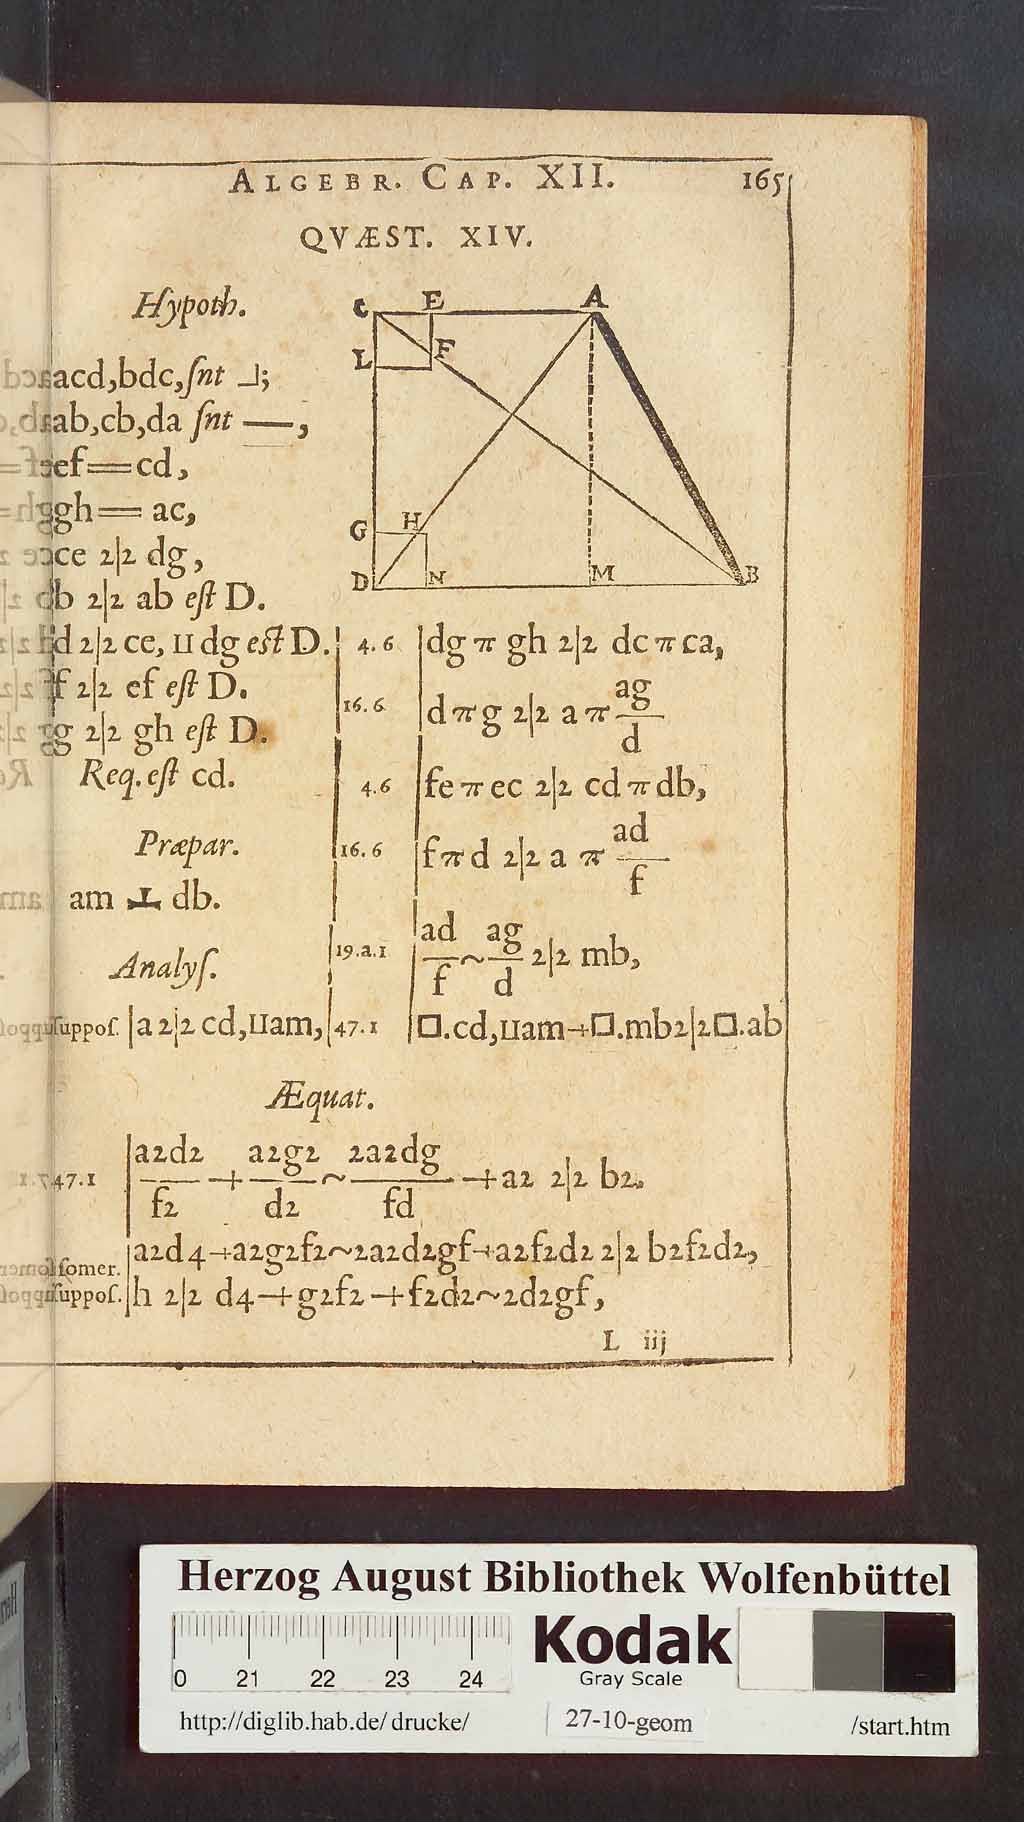 ALGEBR. CAP. XII. 165
QVÆST. XIV.
Hypoth.
acd,bdc,ſnt ⅃;
ab,cb,da ſnt —,
ef==cd,
gh== ac,
ce 2|2 dg,
b 2|2 ab eſt D.
d 2|2 ce, II dg eſt D.
f 2|2 ef eſt D.
g 2|2 gh eſt D.
Req. eſt cd.
Præpar.
am ⊥ db.
Analyſ.
ſuppoſ. |a 2|2 cd,IIam,
C E A
L F
G H
D N M B
4.6 |dg π gh 2|2 dc π ca,
16.6 |d π g 2|2 a π ag/d
4.6 |fe π ec 2|2 cd π db,
16.6 |f π d 2|2 a π ad/f
19.a.1 |ad/f ~ ag/d 2|2 mb,
47.1 |□.cd,IIam+□.mb2|2□.ab
Æquat.
47.1 |a2d2/f2 + a2g2/d2 ~ 2a2dg/fd +a2 2|2 b2.
ſomer. |a2d4+a2g2f2~2a2d2gf+a2f2d2 2|2 b2f2d2,
ſuppoſ. |h 2|2 d4+g2f2+f2d2~2d2gf,
L iij
Herzog August Bibliothek Wolfenbüttel
0 21 22 23 24
Kodak
Gray Scale
http://diglib.hab.de/drucke/ 27-10-geom /start.htm